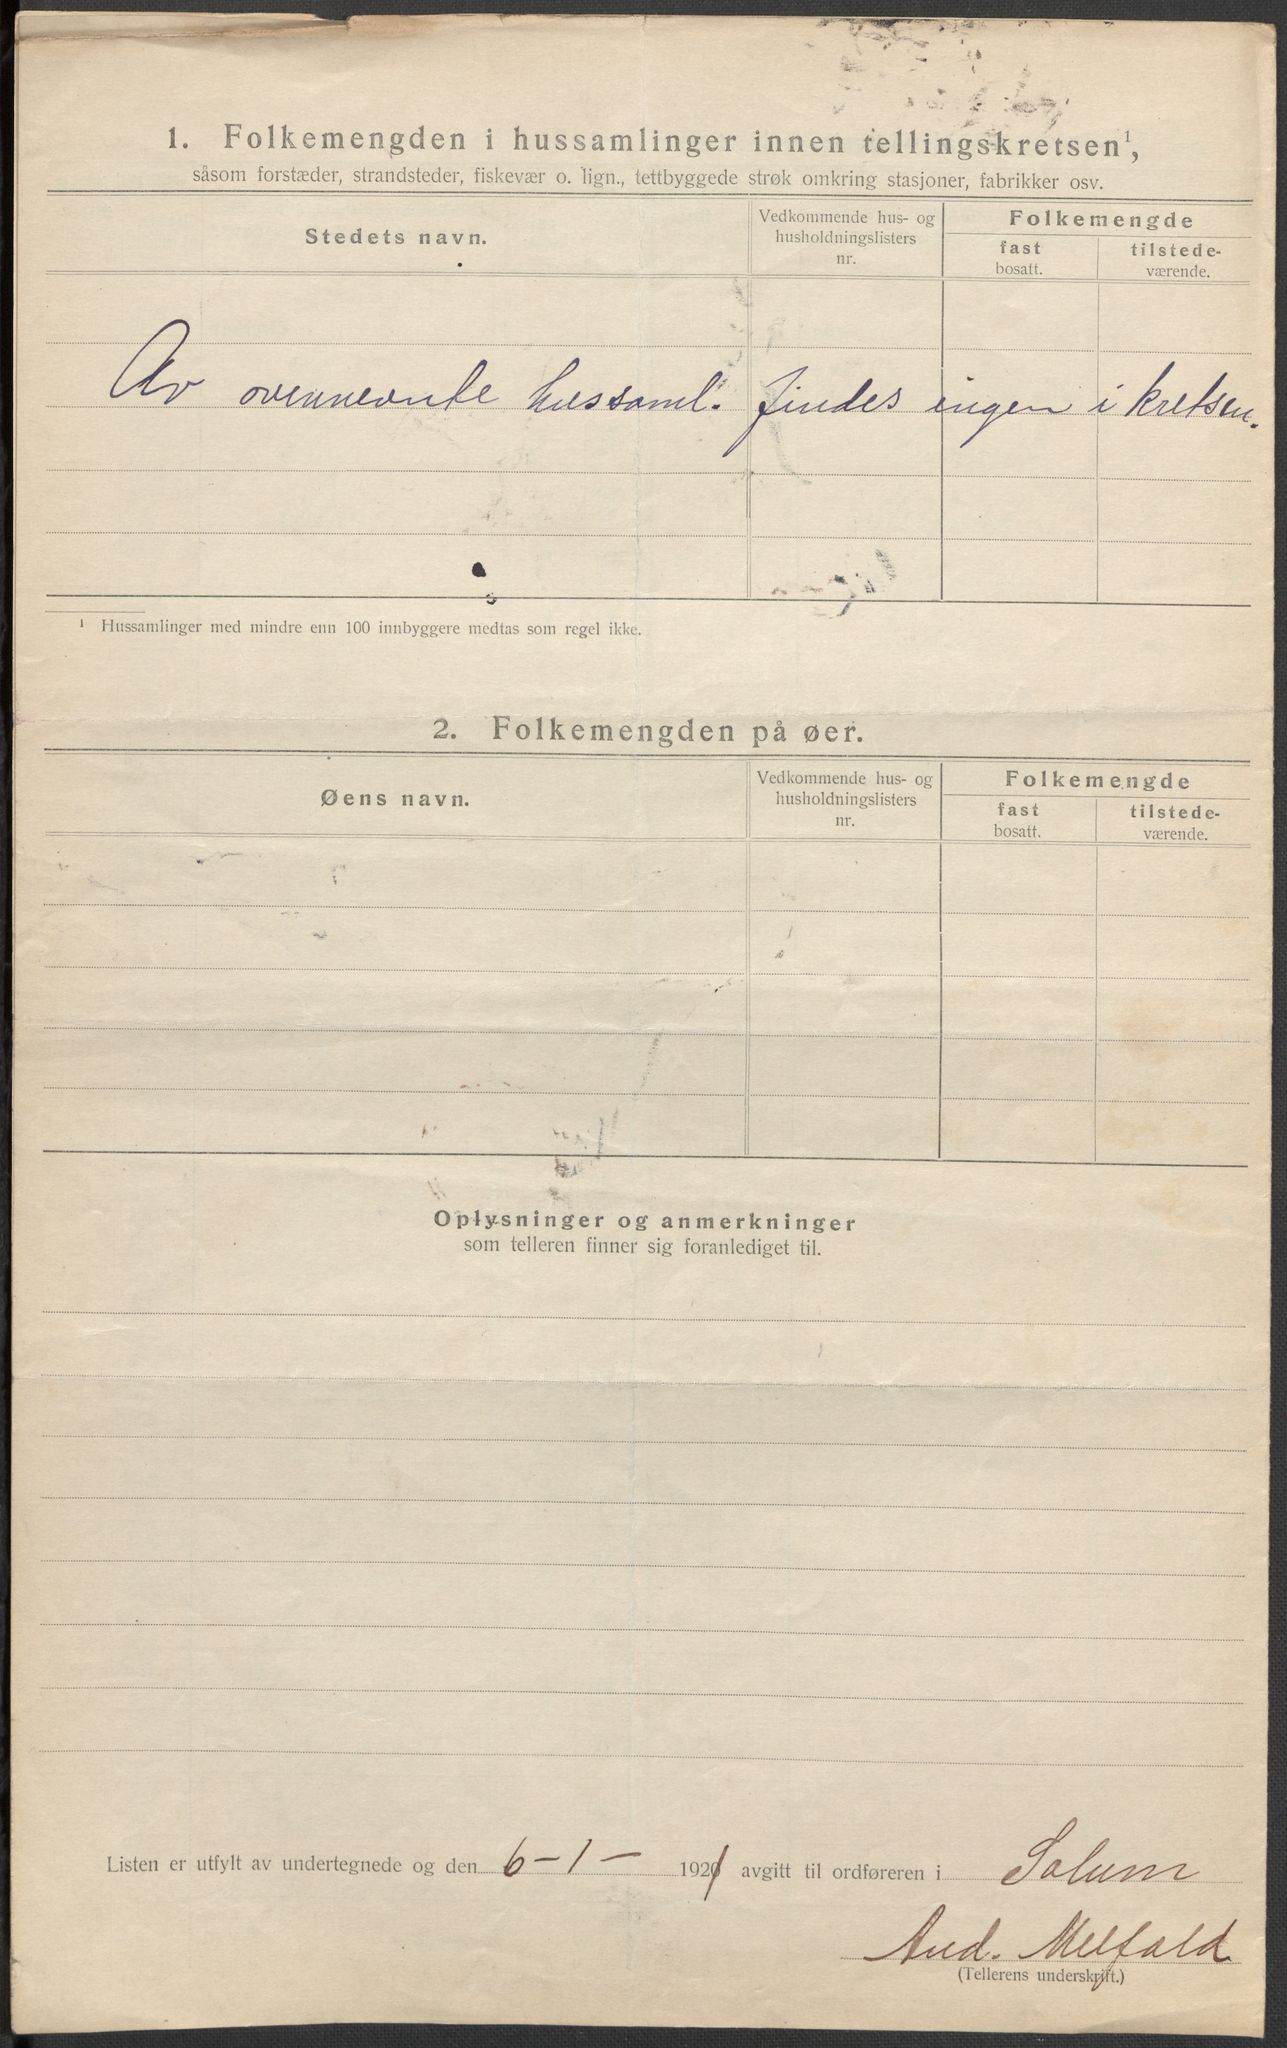 1. Folkemengden i hussamlinger innen tellingskretsen¹,
såsom forstæder, strandsteder, fiskevær o. lign., tettbyggede strøk omkring stasjoner, fabrikker osv.
Stedets navn.
Vedkommende hus- og
husholdningslisters
nr.
Folkemengde
fast
bosatt.
tilstede-
værende.
Av ovennevnte hussaml. findes ingen i kretsen.
¹ Hussamlinger med mindre enn 100 innbyggere medtas som regel ikke.
2. Folkemengden på øer.
Øens navn.
Vedkommende hus- og
husholdningslisters
nr.
Folkemengde
fast
bosatt.
tilstede-
værende.
Oplysninger og anmerkninger
som telleren finner sig foranlediget til.
Listen er utfylt av undertegnede og den 6-1- 1921 avgitt til ordføreren i Solum
And. Melfald
(Tellerens underskrift.)